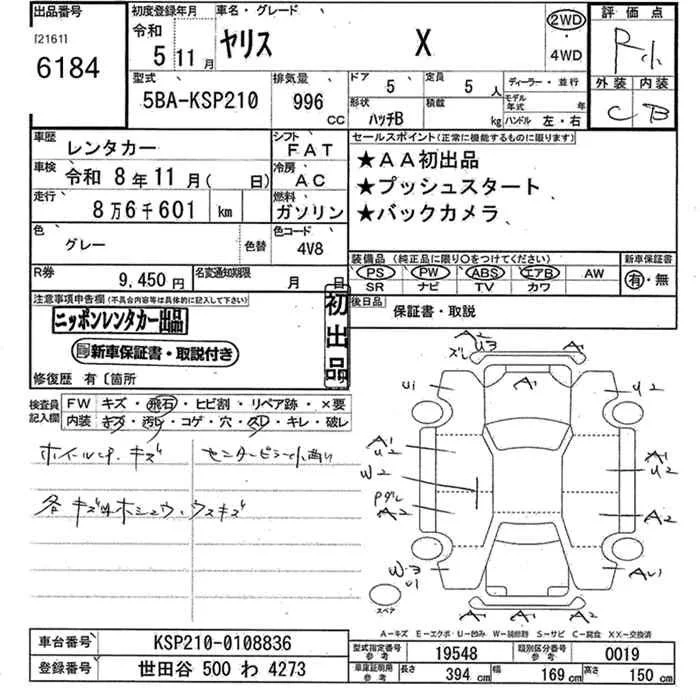 出品番号
[2161]
6184
初度登録年月
令和 5 11 月
車名・グレード
ヤリス X
2WD
・
4WD
評価点
R
外装 内装
C B
型式
5BA-KSP210
排気量
996 CC
ドア 5
定員 5 人
形状 ハッチB
積載 kg
ディーラー・並行
モデル年式 年
ハンドル 左・右
車歴 レンタカー
シフト FAT
車検 令和 8 年 11 月 ( 日)
冷房 AC
走行 8 万 6 千 601 km
燃料 ガソリン
色 グレー 色替
色コード 4V8
R券 9,450 円
名変通知期限 月 日
セールスポイント(正常に機能するものに限ります)
★AA初出品
★プッシュスタート
★バックカメラ
装備品 (純正品に限り〇をつけてください)
PS PW ABS エアB AW
SR ナビ TV カワ
新車保証書
有・無
後日品 保証書・取説
注意事項申告欄(不具合内容等は具体的に記入して下さい)
ニッポンレンタカー出品
新車保証書・取説付き
初出品
修復歴 有〔箇所
検査員記入欄
FW キズ・飛石・ヒビ割・リペア跡・×要
内装 キズ・汚レ・コゲ・穴・スレ・キレ・破レ
ホイール キズ
センターピラー
各 キズ ホシュウ・ウスキズ
A2
U3
ズレ
A1
A1
U1
U2
A1
U2
A1
U2
W2
A2
A2
W3
U1
AU1
A2
A1
A2
スペア
A-キズ E-エクボ U-凹み W-補修跡 S-サビ C-腐食 XX-交換済
車台番号 KSP210-0108836
登録番号 世田谷 500 わ 4273
型式指定番号 参考 19548
類別区分番号 参考 0019
車庫証明用 参考
長さ 394 cm
幅 169 cm
高さ 150 cm